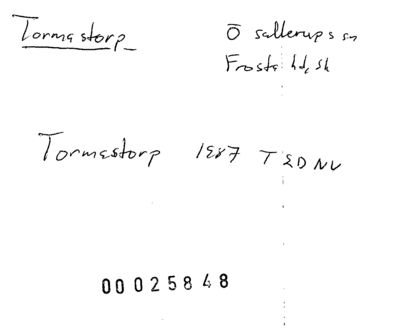 Tormastorp
Ö sallerups sn
Frosta hd, sk
Tormastorp 1887 T
00025848